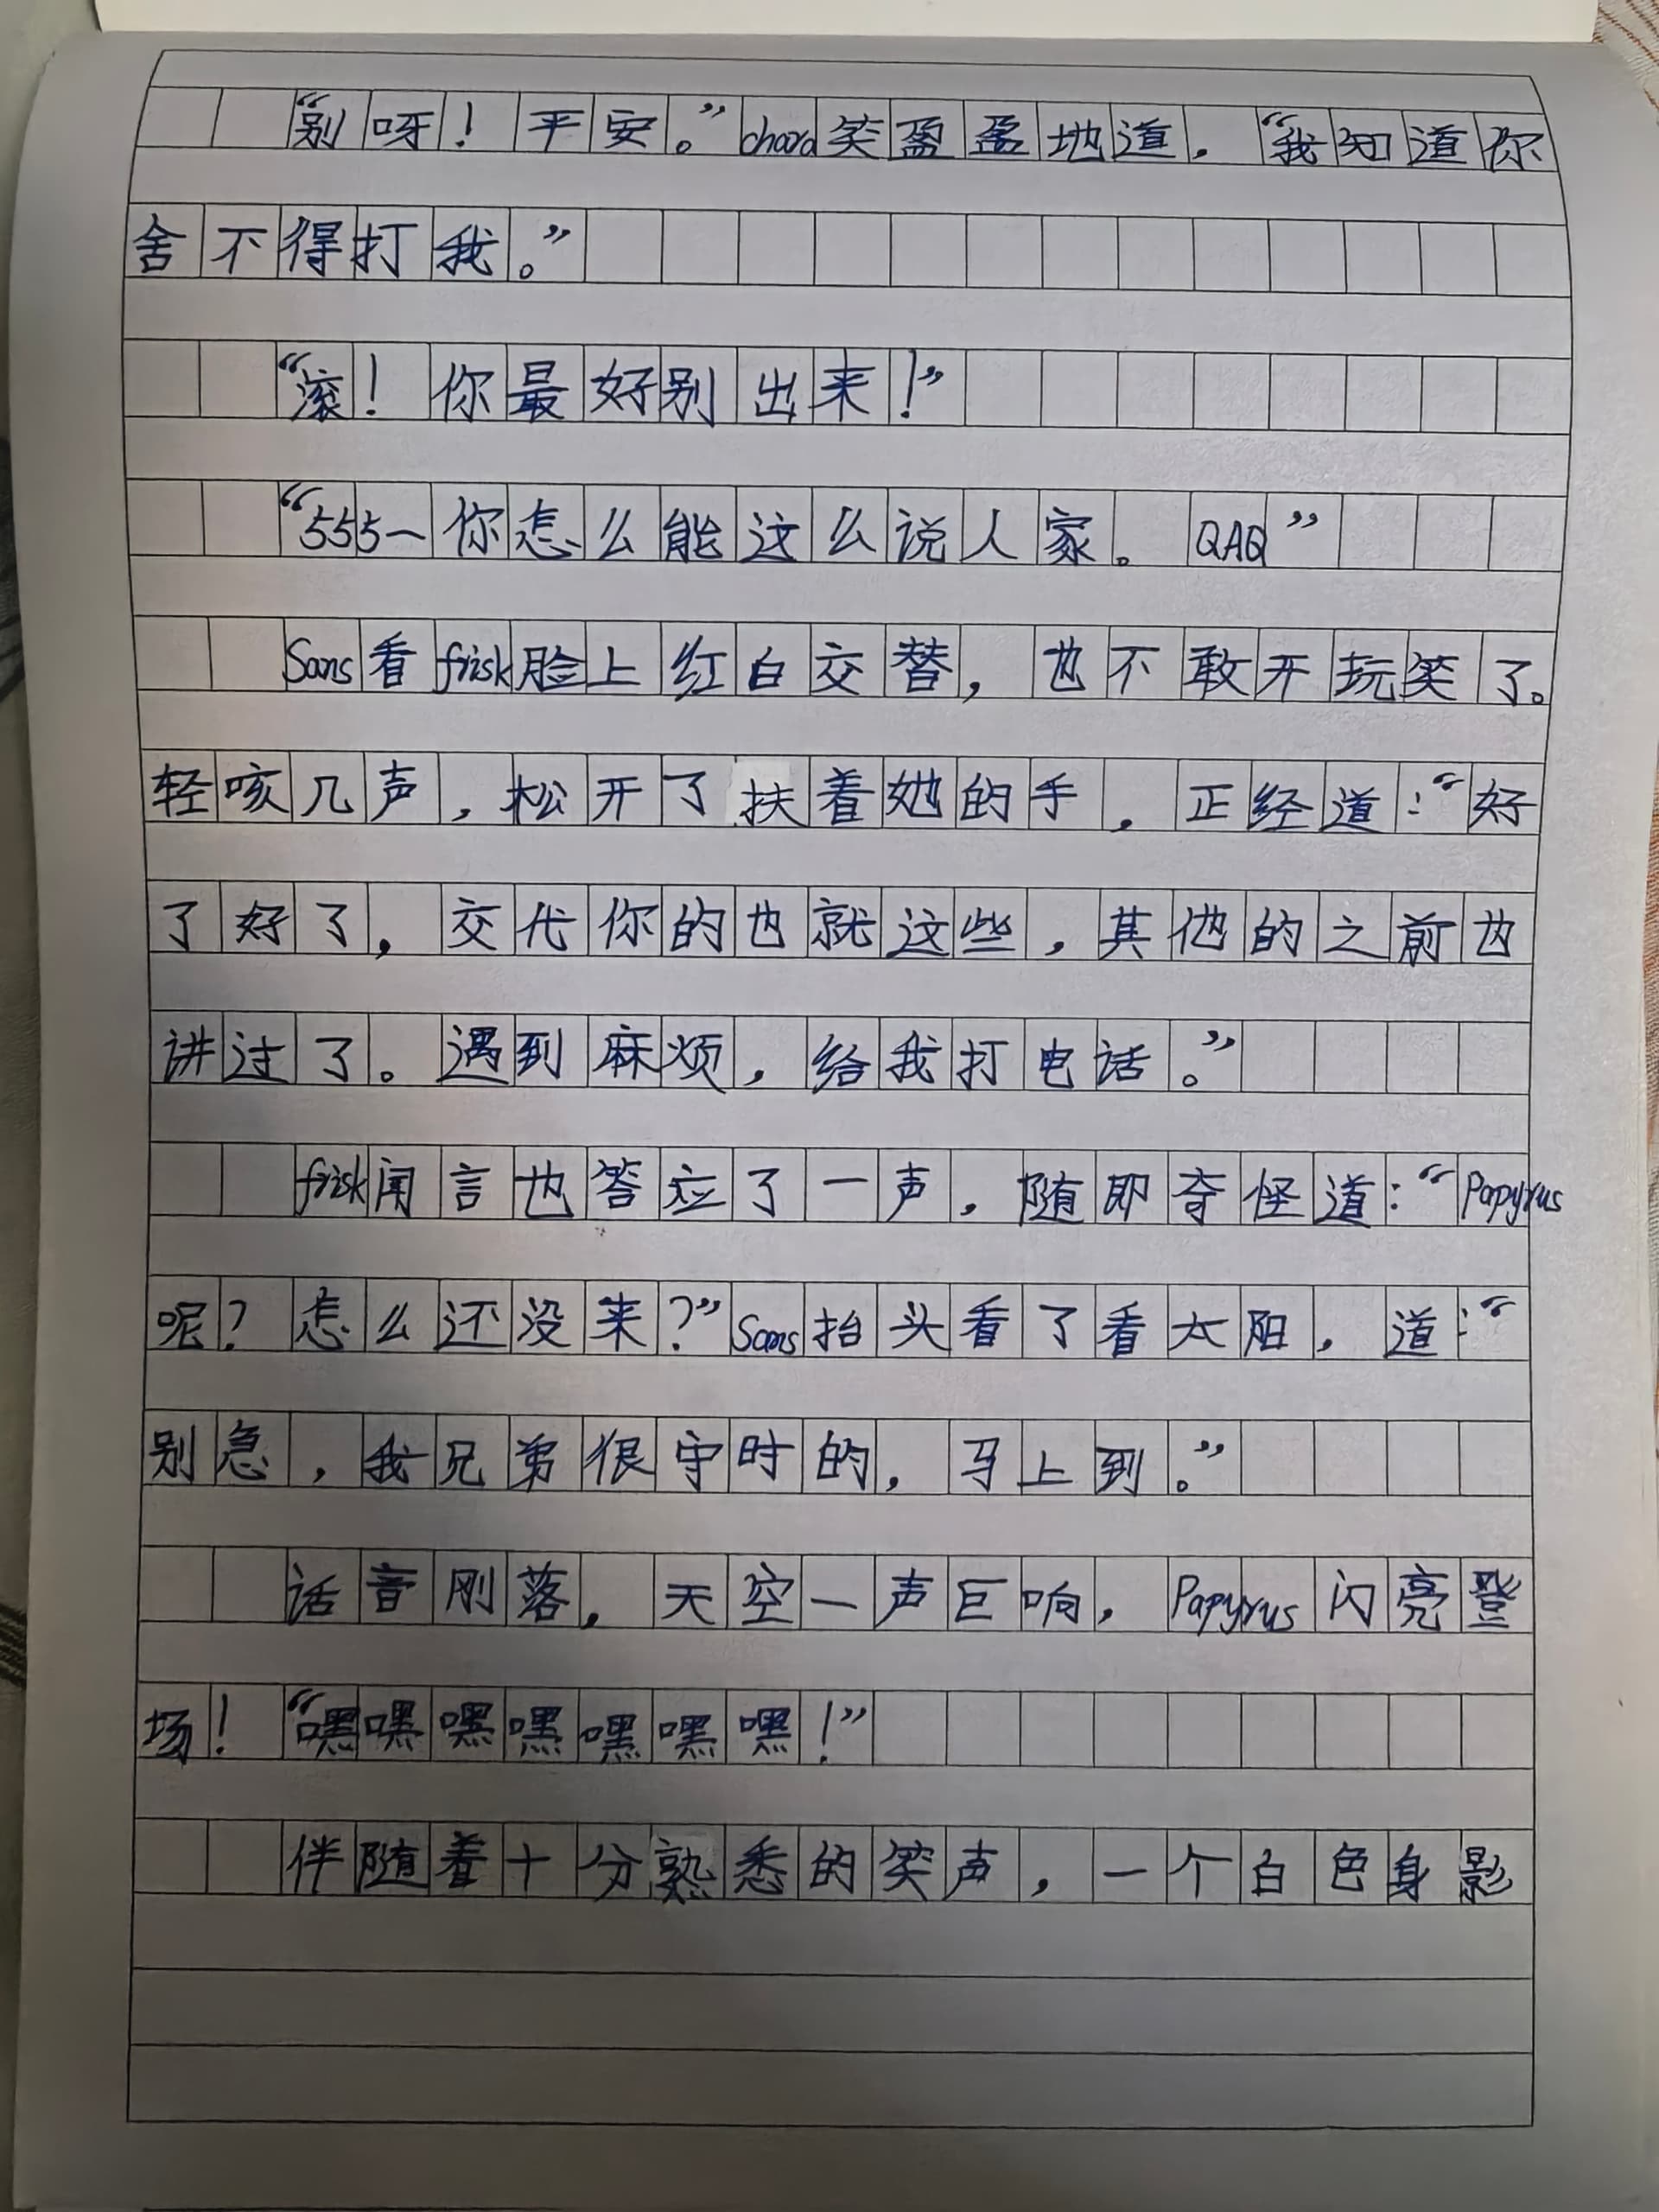 “别呀！平安。”chara笑盈盈地道，“我知道你
舍不得打我。”
“滚！你最好别出来！”
“555~你怎么能这么说人家。QAQ”
Sans看frisk脸上红白交替，也不敢开玩笑了。
轻咳几声，松开了扶着她的手，正经道：“好
了好了，交代你的也就这些，其他的之前也
讲过了。遇到麻烦，给我打电话。”
frisk闻言也答应了一声，随即奇怪道：“Papyrus
呢？怎么还没来？”Sans抬头看了看太阳，道：“
别急，我兄弟很守时的，马上到。”
话音刚落，天空一声巨响，Papyrus闪亮登
场！“嘿嘿嘿嘿嘿嘿嘿！”
伴随着十分熟悉的笑声，一个白色身影